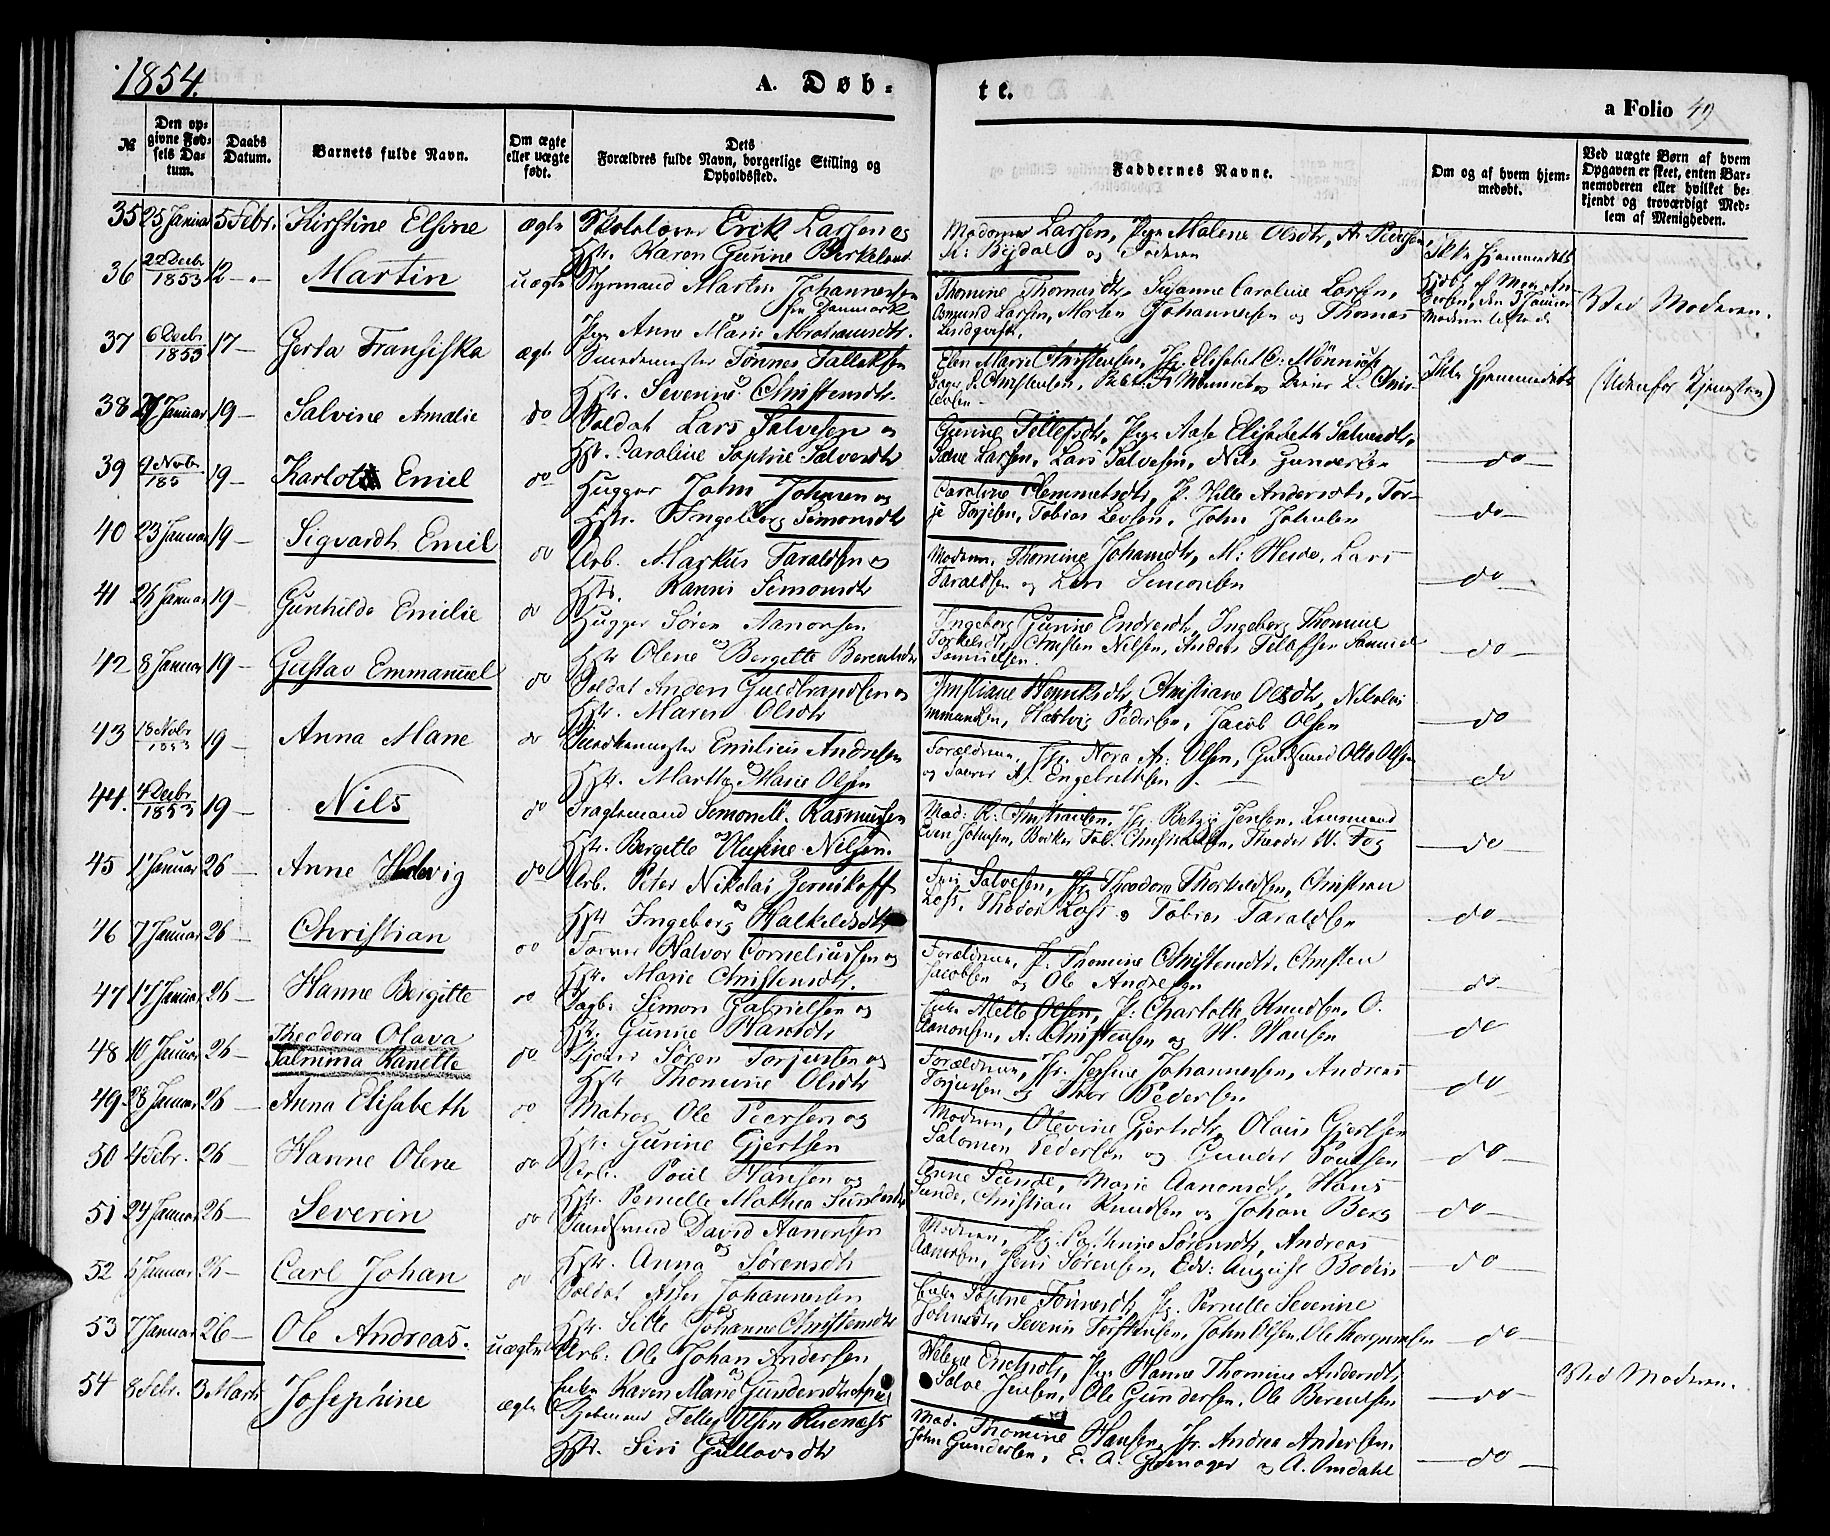 1854.
A. Døb-
te.
a Folio 49
№
Den op-
givne Fød-
sels Da-
tum.
Daabs
Datum.
Barnets fulde Navn.
Om ægte
eller uægte
født.
Dets
Forældres fulde Navn, borgerlige Stilling og
Opholdssted.
Faddernes Navne.
Om og af hvem hjem-
medøbt.
Ved uægte Børn af hvem
Opgaven er skeet, enten Bar-
nemoderen eller hvilket be-
kjendt og troværdigt Med-
lem af Menigheden.
35 25 Januar 5 Febr. Kirstine Elsine ægte Skolelærer Erik Larsen og
Hstr. Karen Gurine Birkeland
Madame Larsen, Pige Malene Olsdtr,
og Faderen
Ikke Hjemmedøbt
36 22 Decbr 1853 12 Martin uægte Styrmand Martin Johannesen
fra Danmark
Pige Anne Marie Abrahamsdtr.
Thomine Thomasdtr, Susanne Caroline Larsen,
Osmund Larsen, Morten Johannesen og Thomas
Lindqvist.
den 3 Januar
Ved Moderen.
37 6 Decbr 1853 17 Gerda Fransiska ægte Smedemester Tønnes Tallaksen
Hstr. Severine Christensdtr.
Elen Marie Christensen,
Ikke Hjemmedøbt
(Udenfor Kjøngsten)
38 27 Januar 19 Salvine Amalie do Soldat Lars Salvesen og
Hstr. Caroline Sophie Salvesdtr
Gurine Tellefsdtr, Pige Aase Elisabeth Salvesdtr,
Larsen, Lars Salvesen, Nils Gundersen
do
39 9 Novbr 185 19 Karlot Emiel do Hugger John Johnsen og
Hstr. Ingeborg Simonsdtr
Caroline Hemmelsdtr, P. Hille Andersdtr, Tor-
je Torjesen, Tobias Levsen, John Johnsen
do
40 23 Januar 19 Sigvardt Emiel do Arb. Markus Taraldsen og
Hstr. Kanni Simonsdtr
Moderen, Thomine Johansdtr, M: Heide, Lars
Taraldsen og Lars Simonsen
do
41 26 Januar 19 Gunhilde Emilie do Hugger Søren Aanonsen
og
Hstr Olene Bergitte Berentsdtr
Ingeborg Gurine Endresdtr, Ingeborg Thomine
Torkelsdtr, Christen Nilsen, Anders Tellefsen Samuel
Samuelsen.
do
42 8 Januar 19 Gustav Emmanuel do Soldat Anders Guldbrandsen og
Hstr. Maren Olsdtr
Christiane Henriksdtr, Christiane Olsdtr, Nikolai
Hartvig Pedersen, Jacob Olsen
do
43 18 Novbr 1853 19 Anna Marie do Emilius Andresen
og
Hstr. Marthe Marie Olsen
Forældrene, Nora A. Olsen, Otto Olsen
og Farver A. Engebrethsen
do
44. 4 Decbr 1853 19 Nils do Fragtemand Simon Rasmussen
og
Hstr. Bergitte Nilsen.
Mad: K: Christiansen, Betzy Jensen, Lensmand
Even Johnsen, Theodor W. Fog
do
45 1 Januar 26 Anne Hedvig do Arb. Peter Nikolai
og
Hstr Ingeborg Halkildsdtr
Salvesen, Theodora Thorkildsen, Christian
Loss, Theodor Loss og Tobias Taraldsen
do
46 7 Januar 26 Christian do Farver Halvor Corneliussen og
Hstr. Marie Christensdtr.
Forældrene, P. Thomine Christensdtr, Christen
Jacobsen og Ole Andresen
do
47 17 Januar 26 Hanne Bergitte do Dagb: Simon Gabrielsen og
Hstr. Gurine Hansdtr
Enke Mette Olsen, P. Charlotte Knudsen, O.
Aanonsen, A: Christensen og H. Hansen
do
48 10 Januar 26 Theodora Olava
Palmina Hanette do Søren Torjussen og
Hstr Thomine Olsdtr
Forældrene, Josine Johannessen, Andreas
Torjussen og Thor Pedersen
do
49 28 Januar 26 Anna Elisabeth do Matros Ole Peersen og
Hstr. Gurine Gjertsen
Moderen, Olevine Gjertsdtr, Olaus Gjertsen
Salomon Pedersen og Gunder Poulsen
do
50 4 Febr. 26 Hanne Olene do Arb. Poul Hansen og
Hstr. Pernille Mathea
Anne Sunde, Marie Aanonsdtr, Hans
Sunde, Christian Knudsen og Johan Berg
do
51 24 Januar 26 Severin do David Aanonsen
og
Hstr. Anna Sørensdtr
Moderen, Pg. Cathrine Sørensdtr, Andreas
Aanonsen, Jens Sørensen, Edv: August Bodin
do
52 6 Januar 26 Carl Johan do Soldat Johannesen
og
Hstr. Sille Johanne Christensdtr
Enke Sophie Tønnesdtr, Pg. Pernille Severine
Johnsdtr, Severin Torstensen, John Olsen, Ole Thorgrimsen
do
53 7 Januar 26 Ole Andreas. uægte Arb: Ole Johan Andersen
Enke Karen Marie Gundersdtr
Helene Erichsdtr, Pige Hanne Thomine Andersdtr
Salve Jensen, Ole Gundersen, Ole Berentsen
do
Ved Moderen.
54 8 Febr. 3 Marts Josephine ægte Tellef Olsen
Hstr. Siri Gullovsdtr
Mad. Thomine Hansen, Jfr. Andrea Andersen
John Gundersen, E. A. Grønager og A. Omdahl
do